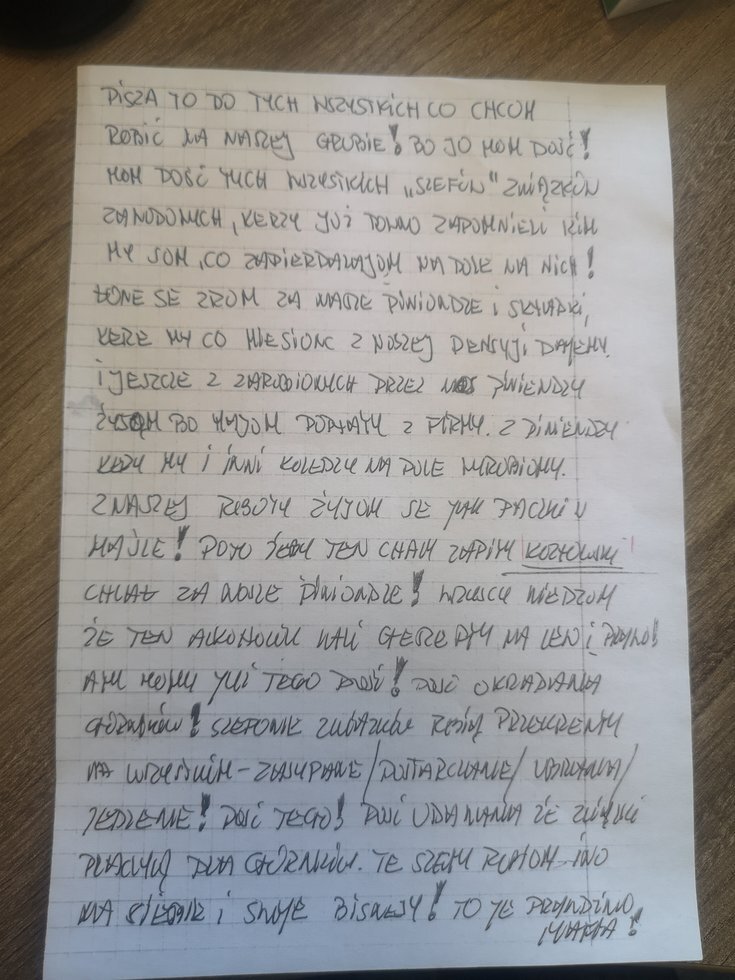 PISZA TO DO TYCH WSZYSTKICH CO CHCOM
ROBIĆ NA NASZEJ GRUBIE! BO JO MOM DOŚĆ!
MOM DOŚĆ TYCH WSZYSTKICH „SZEFÓW” ZWIĄZKÓW
ZAWODOWYCH, KERZY JUŻ DOWNO ZAPOMNIELI KIM
MY SOM, CO ZAPIERDALAJOM NA DOLE NA NICH!
ŁONE SE ZROM ZA NASZE PINIONDZE I SKŁADKI,
KERE MY CO MIESIONC Z NOSZEJ PENSYJI DAJEMY.
I JESZCZE Z ZAROBIONYCH PRZEZ NOS PINIENDZY
ŻYJOM BO MAJOM POPŁATY Z FIRMY. Z PINIENDZY
KERE MY I INNI KOLEDZY NA DOLE WYROBIOMY.
Z NASZEJ ROBOTY ŻYJOM SE JAK PĄCZKI W
MAŚLE! POTO TEN CHAM KOZŁOWSKI
CHLAŁ ZA NOSZE PINIONDZE! WSZYSCY WIEDZOM
ŻE TEN ALKOHOLIK WALI NA LEWO I PRAWO!
MOMY JUŻ TEGO DOŚĆ! DOŚĆ OKRADANIA
GÓRNIKÓW! SZEFOWIE ZWIĄZKÓW ROBIĄ PRZEKRENTY
NA WSZYSTKIM - ZASYPANE / DOSTARCZANIE / UBRANIA /
JEDZENIE! DOŚĆ TEGO! DOŚĆ UDAWANIA ŻE ZWIĄZKI
PRACUJĄ DLA GÓRNIKÓW. TE SZEFY INO
NA SIEBIE I SWOJE BISNESY! TO JE PRAWDZIWO
MAFIA!